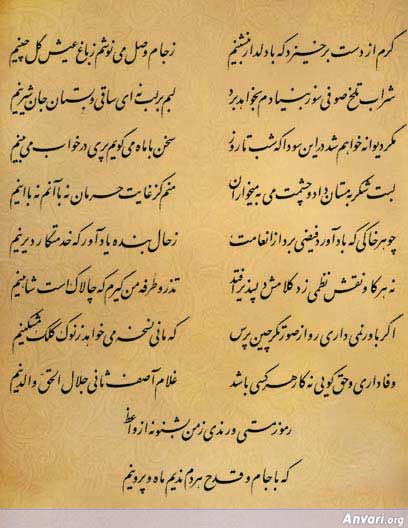 گرم از دست برخیزد که با دلدار بنشینم ز جام وصل می نوشم ز باغ عیش گل چینم
شراب تلخ صوفی سوز بنیادم بخواهد برد لبم بر لب نه ای ساقی و بستان جان شیرینم
مگر دیوانه خواهم شد در این سودا که شب تا روز سخن با ماه می گویم پری در خواب می بینم
لبت شکر به مستان داد و چشمت می به میخواران منم کز غایت حرمان نه با آنم نه با اینم
چو هر خاکی که باد آورد فیضی برد از انعامت ز حال بنده یاد آور که خدمتگار دیرینم
نه هر کو نقش نظمی زد کلامش دلپذیر افتد تذرو طرفه من گیرم که چالاک است شاهینم
اگر باور نمی داری رو از صورتگر چین پرس که مانی نسخه می خواهد ز نوک کلک مشکینم
وفاداری و حق گویی نه کار هر کسی باشد غلام آصف ثانی جلال الحق و الدینم
رموز مستی و رندی ز من بشنو نه از واعظ
که با جام و قدح هر دم ندیم ماه و پروینم
Anvari.org